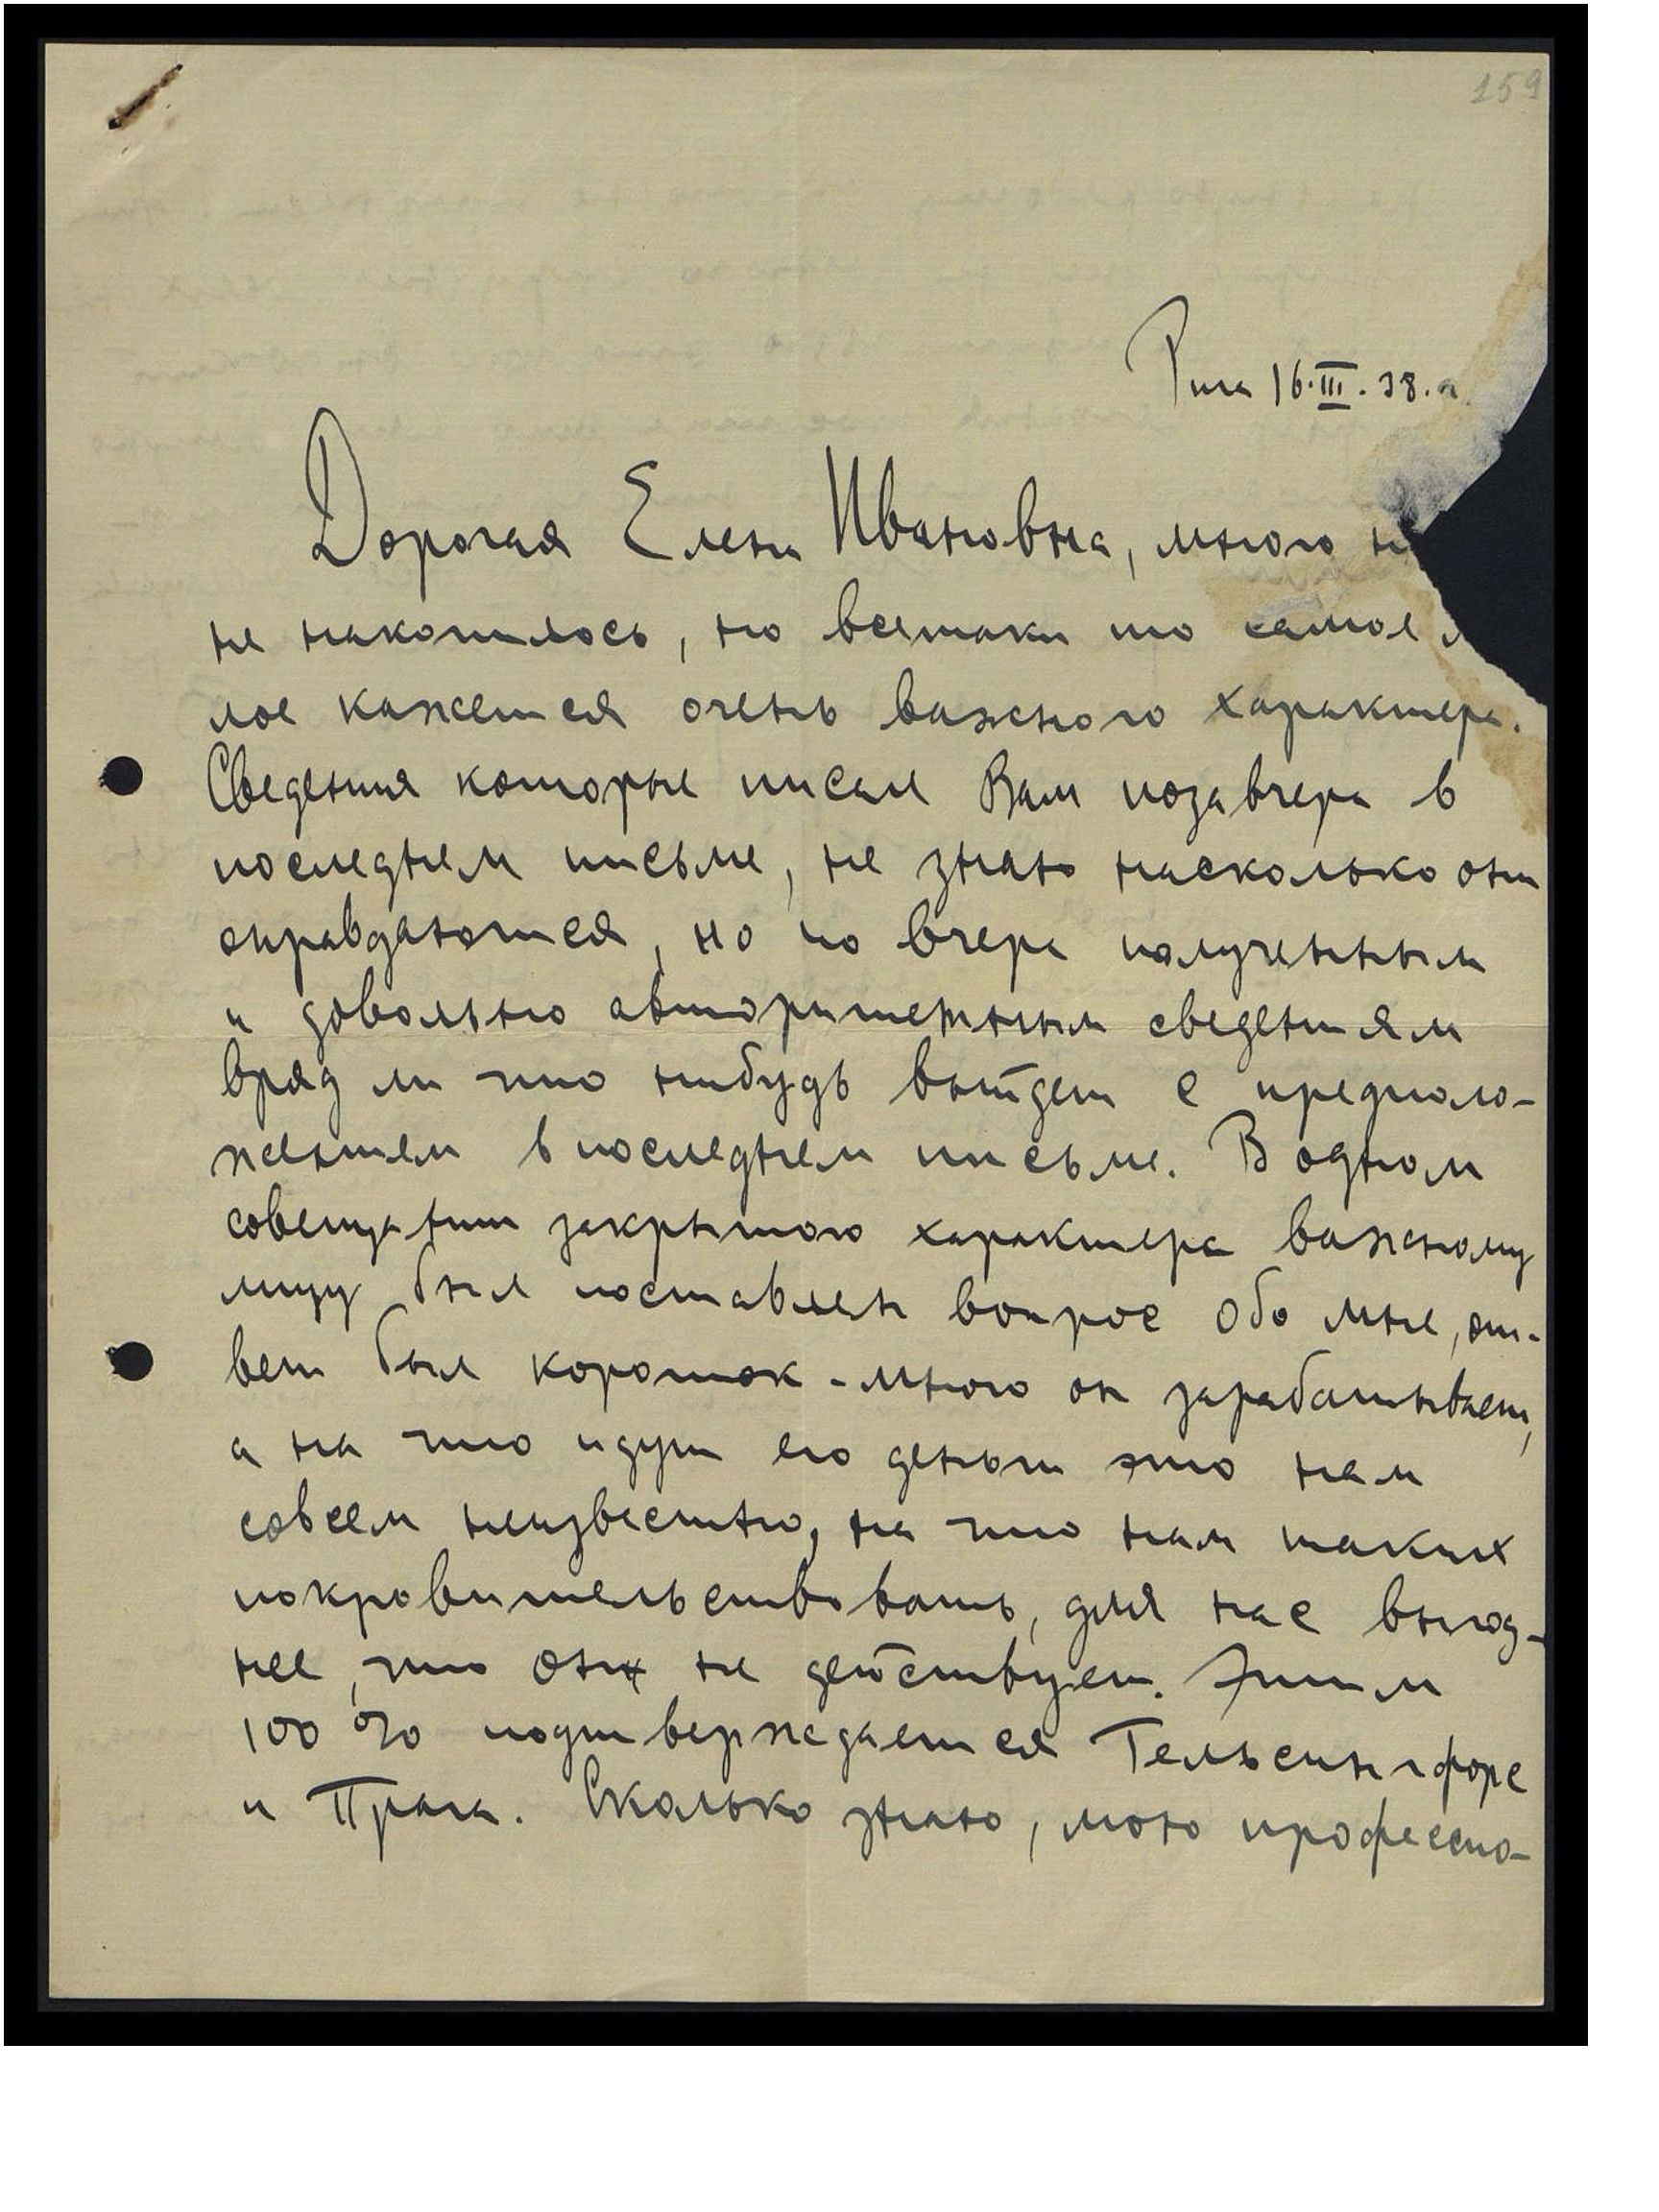 159
Рига 16.III.38.г.
Дорогая Елена Ивановна, много
не накопилось, но всетаки то самое
лое кажется очень важного характера.
Сведения которые писал Вам позавчера в
последнем письме, не знаю насколько они
оправдаются, но по вчера полученным
и довольно авторитетным сведениям
вряд ли что нибудь выйдет с предполо-
жением в последнем письме. В одном
совещании закрытого характера важному
лицу был поставлен вопрос обо мне, от-
вет был короток - много он зарабатывает,
а на что идут его деньги это нам
совсем неизвестно, на что нам таких
покровительствовать, для нас выгод-
нее, что он не действует. Этим
100% подтверждается Гельсингфорс
и Прага. Сколько знаю, мою профессио-